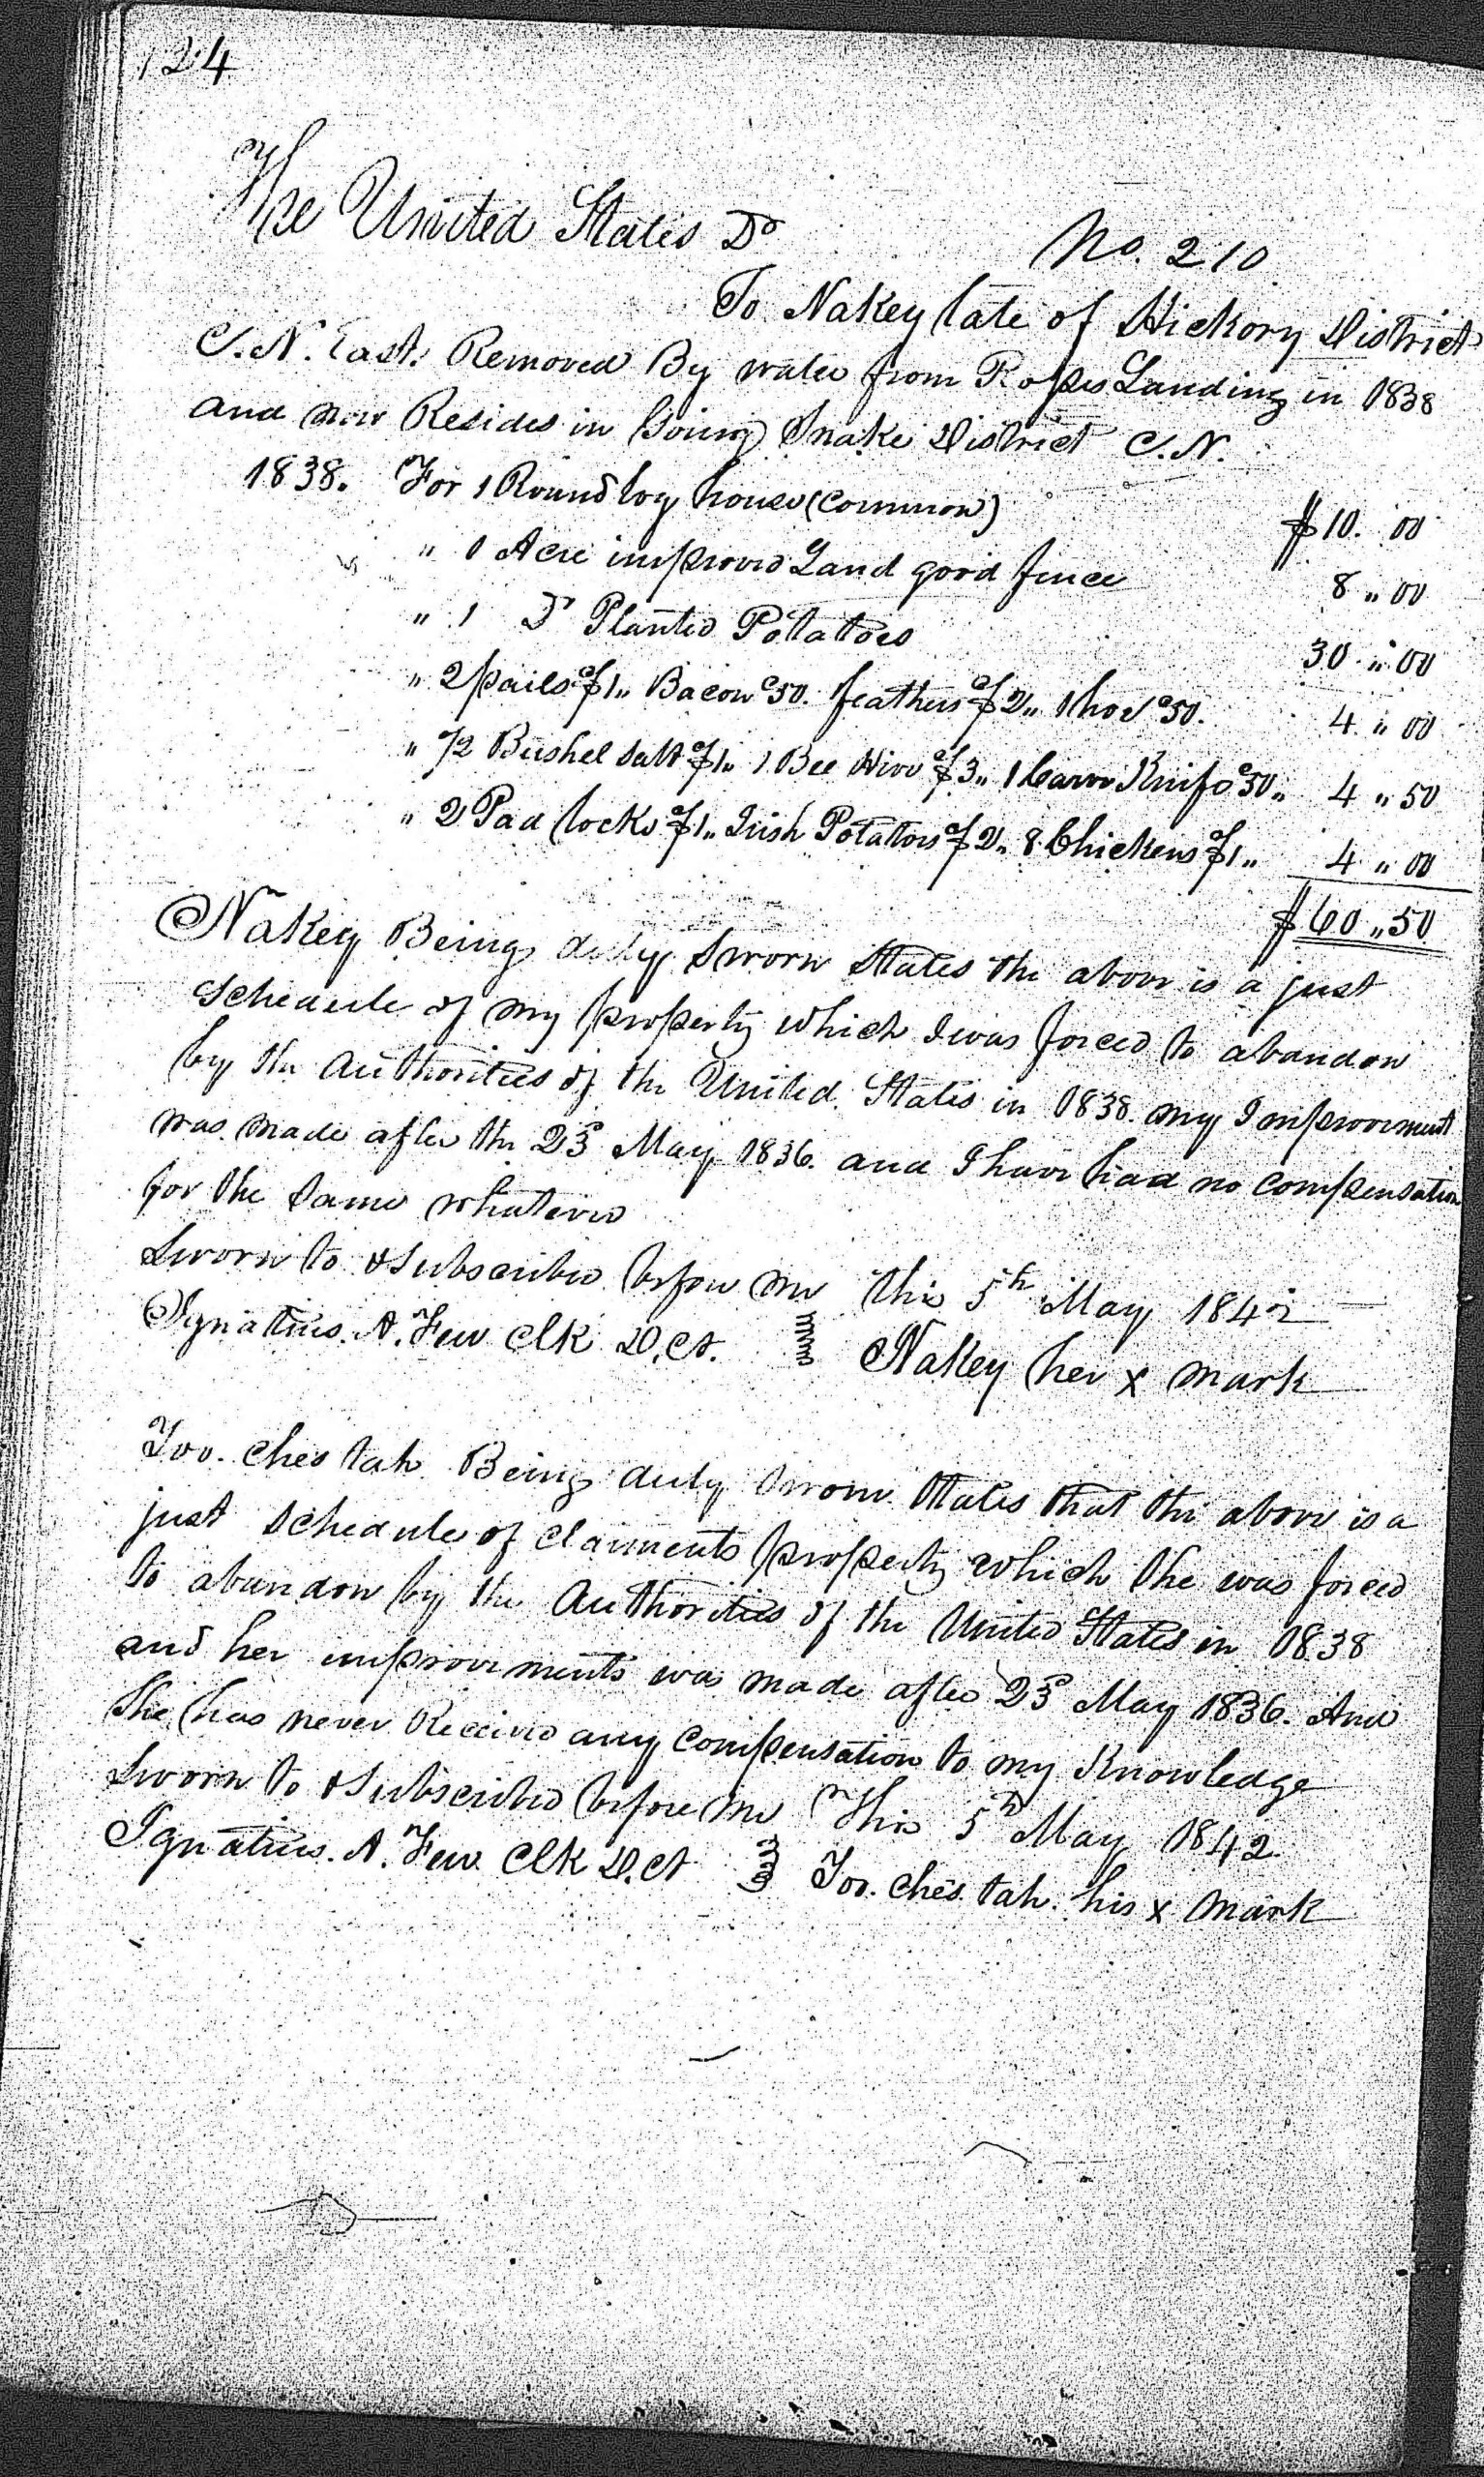 124
The United States Dr
No. 210
To Nakey late of Hickory District
C.N. East. Removed By water from Rosses Landing in 1838
and now Resides in Going Snake District C.N.
1838. For 1 Round log house (common) $10. 00
" 1 Acre improved Land good fence 8 " 00
" 1 Do Planted Potatoes 30 " 00
" 2 pails $1 " Bacon c50. feathers $2 " 1 hoe c50. 4 " 00
" 1/2 Bushel salt $1 " 1 Bee Hive $3 " 1 Carve Knife c50 " 4 " 50
" 2 Pad locks $1 " Irish Potatoes $2 " 8 Chickens $1 " 4 " 00
$60 " 50
Nakey Being duly sworn States the above is a just
schedule of my property which I was forced to abandon
by the Authorities of the United States in 1838. my Improvement
was made after the 23d May 1836. and I have had no compensation
for the same whatever
Sworn to & subscribed before me this 5th May 1842
Ignatius. A. Few Clk D. Ct. Nakey her x mark
Too. ches tah. Being duly sworn States that the above is a
just schedule of claiments property which she was forced
to abandon by the Authorities of the United States in 1838
and her improvments was made after 23d May 1836. And
she has never Received any compensation to my Knowledge
Sworn to & subscribed before me This 5th May 1842.
Ignatius. A. Few Clk D. Ct Too. ches. tah. his x mark